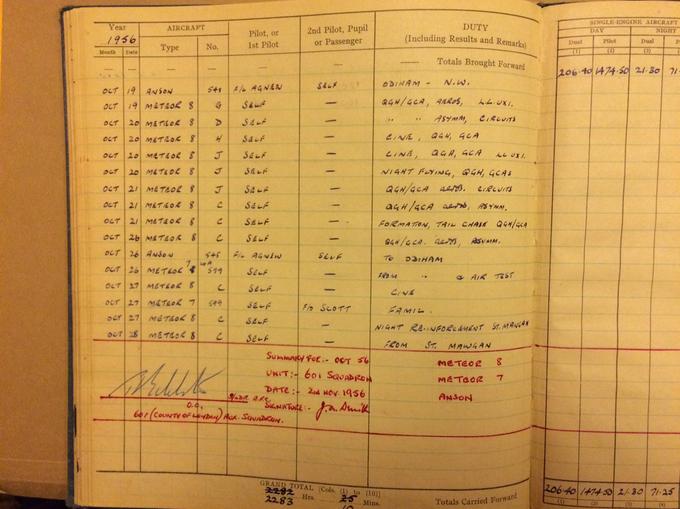 Year AIRCRAFT Pilot, or 1st Pilot 2nd Pilot, Pupil or Passenger DUTY (Including Results and Remarks) SINGLE-ENGINE AIRCRAFT
1956 DAY NIGHT
Month Date Type No. Dual Pilot Dual
(1) (2) (3)
— — — — — — — Totals Brought Forward 206.40 1474.50 21.30 71.
OCT 19 ANSON 548 F/L AGNEW SELF ODIHAM - N.W.
OCT 19 METEOR 8 G SELF — QGH/GCA, AEROS, L.L. UXI.
OCT 20 METEOR 8 D SELF — " " ASYMM, CIRCUITS
OCT 20 METEOR 8 H SELF — CINE, QGH, GCA
OCT 20 METEOR 8 J SELF — CINE, QGH, GCA LL UXI.
OCT 20 METEOR 8 J SELF — NIGHT FLYING, QGH, GCAS
OCT 21 METEOR 8 J SELF — QGH/GCA CIRCUITS
OCT 21 METEOR 8 C SELF — QGH/GCA ASYMM.
OCT 21 METEOR 8 C SELF — FORMATION, TAIL CHASE QGH/GCA
OCT 26 METEOR 8 C SELF — QGH/GCA. ASYMM.
OCT 26 ANSON 548 F/L AGNEW SELF TO ODIHAM
OCT 26 METEOR 7 599 SELF — FROM " & AIR TEST
OCT 27 METEOR 8 C SELF — CINE
OCT 27 METEOR 7 599 SELF F/O SCOTT FAMIL.
OCT 27 METEOR 8 C SELF — NIGHT RE-INFORCEMENT ST. MAWGAN
OCT 28 METEOR 8 C SELF — FROM ST. MAWGAN
SUMMARY FOR:- OCT 56 METEOR 8
UNIT:- 601 SQUADRON METEOR 7
DATE:- 2nd NOV. 1956 ANSON
S/LDR
O.C. SIGNATURE:- J.A. Smith
601 (COUNTY OF LONDON) SQUADRON.
GRAND TOTAL [Cols. (1) to (10)]
2282 Hrs. 25 Mins. Totals Carried Forward 206.40 1474.50 21.30 71.25
2283 10 (1) (2) (3) (4)